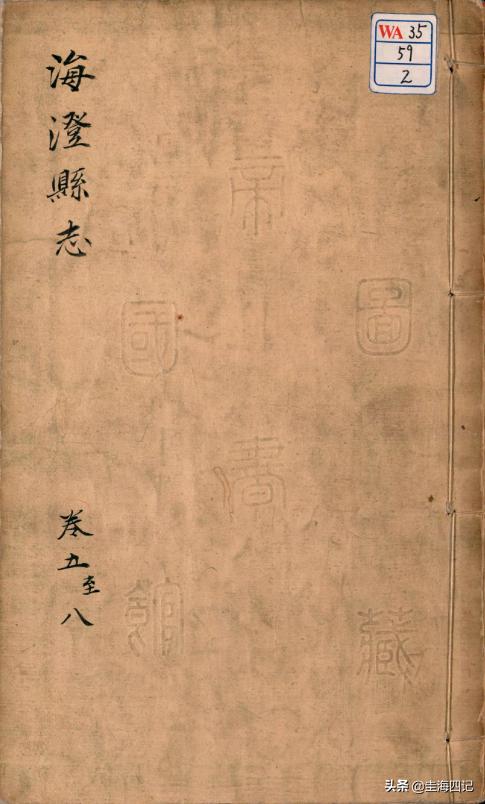 海澄縣志
卷五至八
WA 35
59
2
帝國圖書館藏
头条 @圭海四记